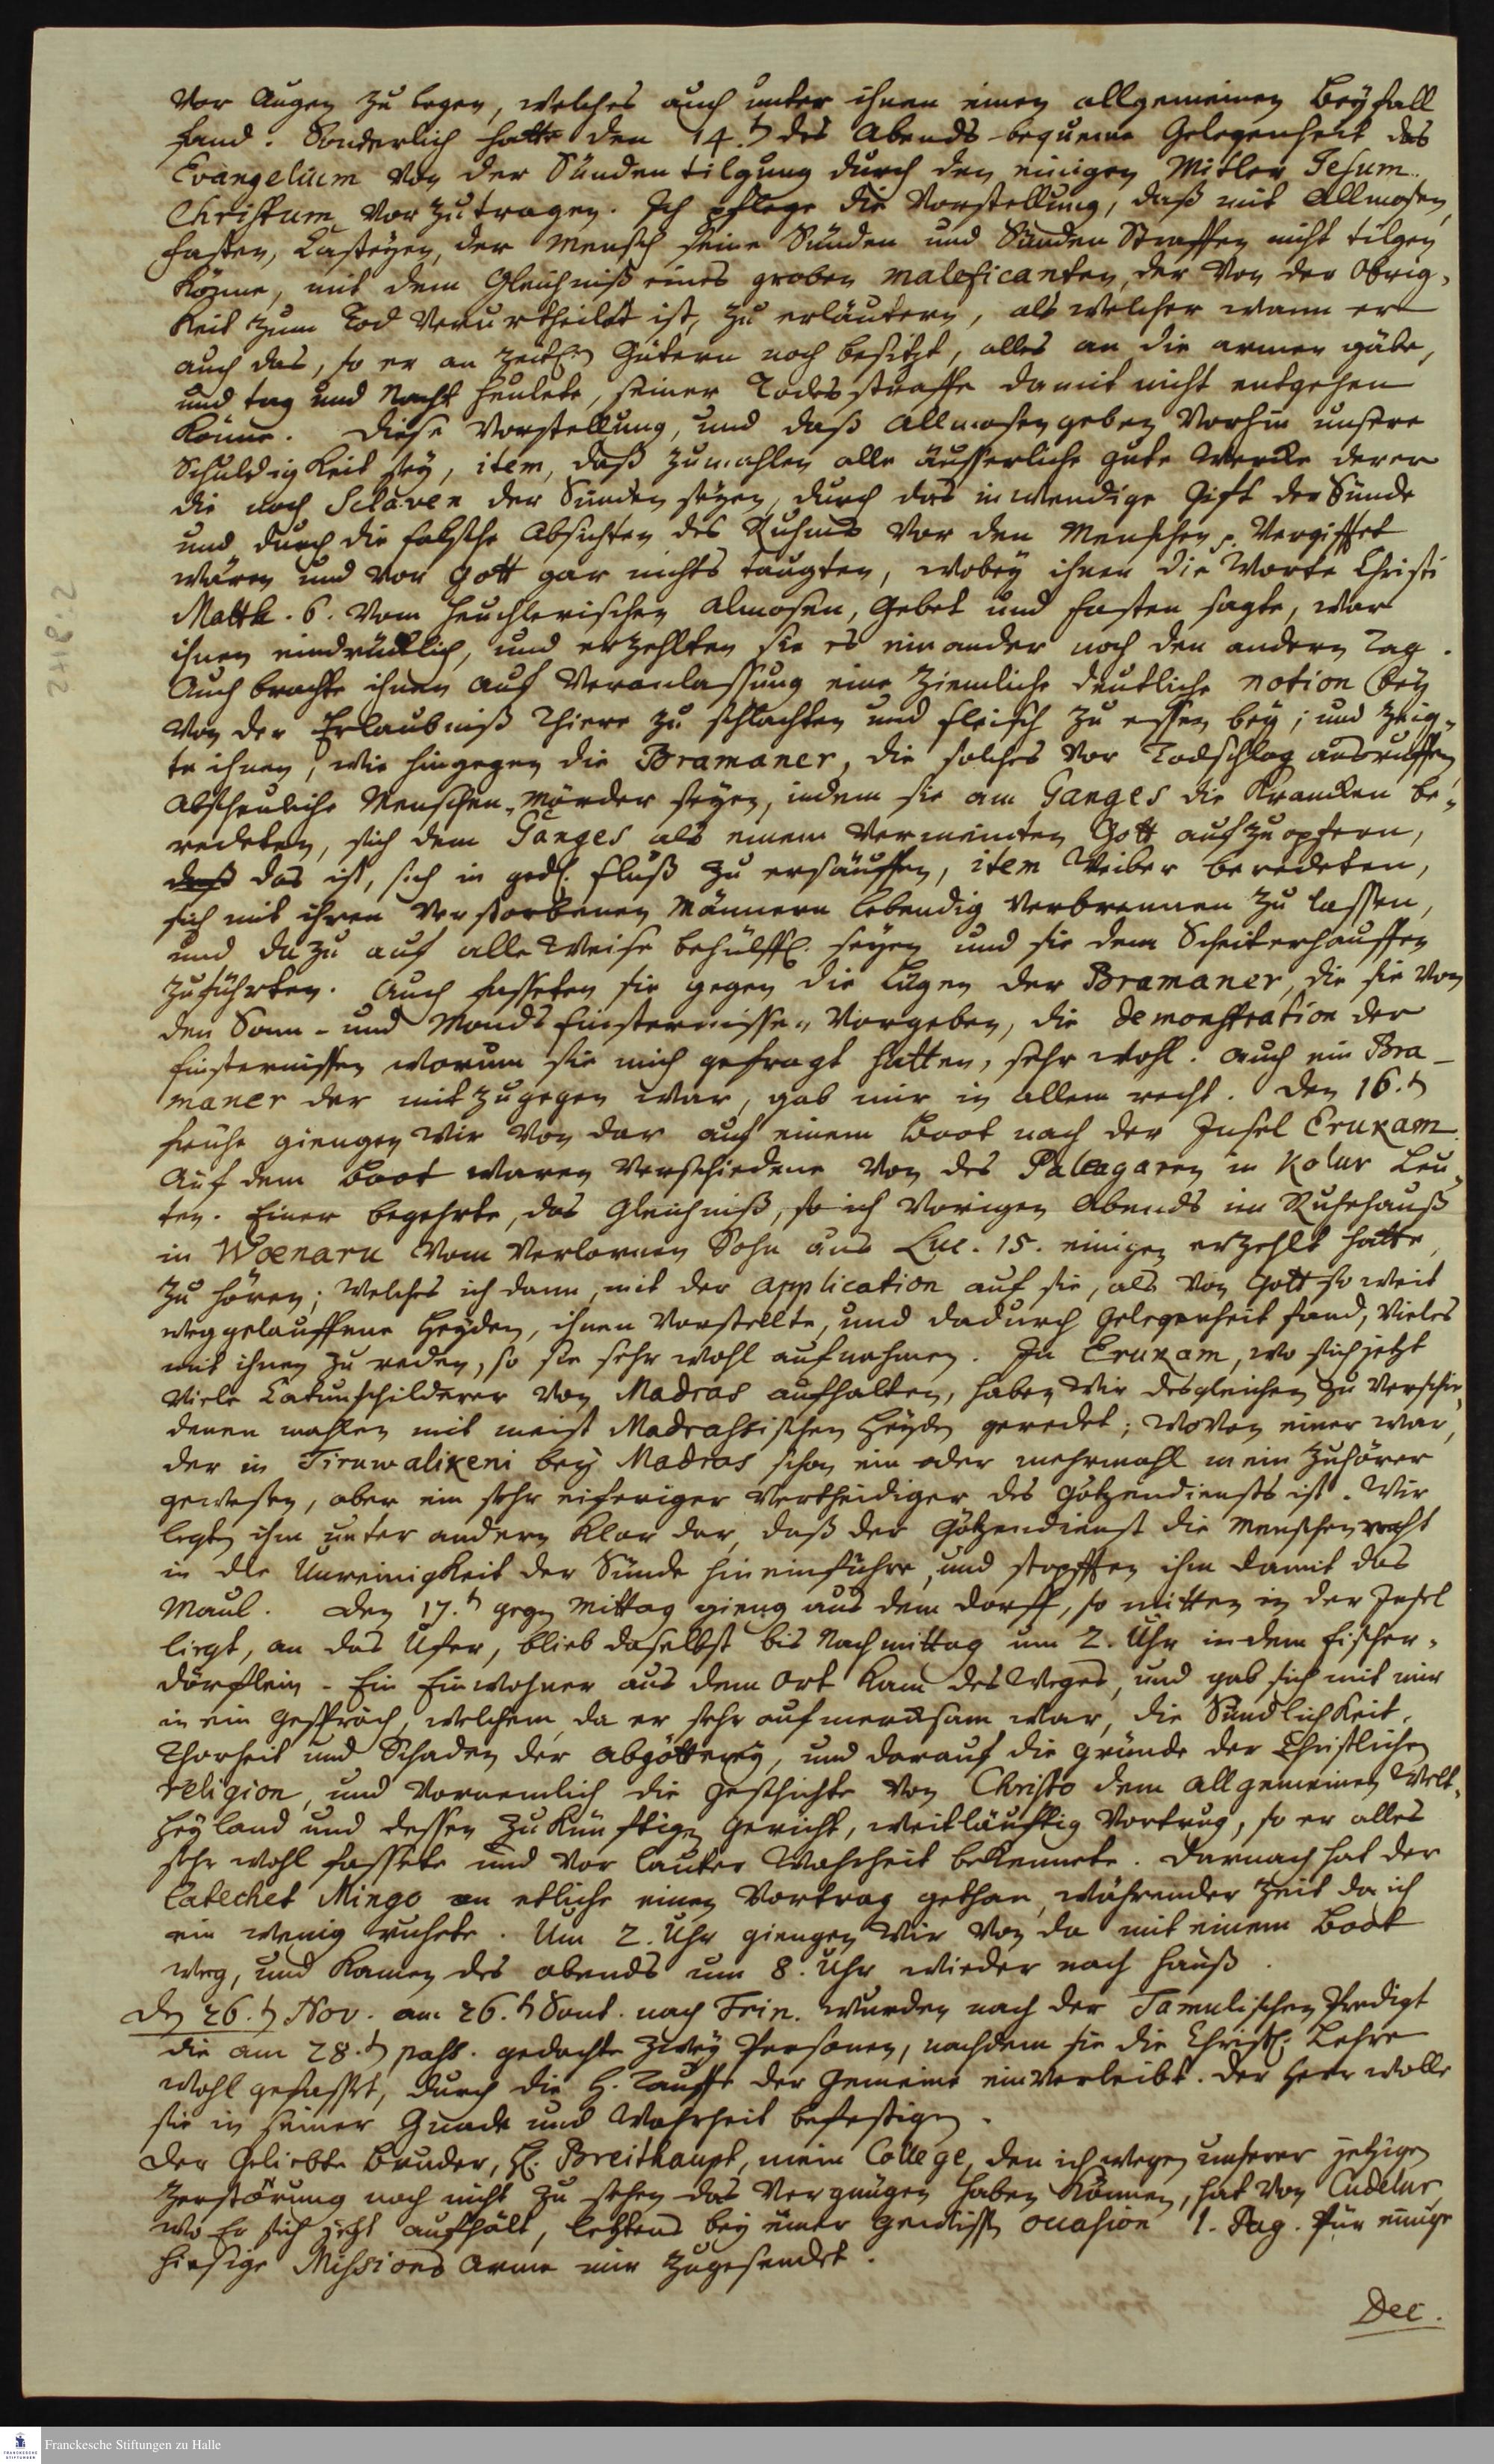 vor Augen zu legen, welches auch unter ihnen einen allgemeinen Beyfall
fand. Sonderlich hatte den 14.t des Abends bequeme Gelegenheit das
Evangelium von der Sünden tilgung durch den einigen Mitler Jesum
Christum vorzutragen. Ich pflege die Vorstellung, daß mit Allmosen,
fasten, Casteyen, der Mensch seine Sünden und Sünden Straffen nicht tilgen
könne, mit dem Gleichniß eines groben maleficanten, der von der Obrig-
keit zum Tod verurtheilet ist, zu erläutern, als welcher wann er
auch das, so er an zeitl. Gütern noch besitzt, alles an die armen gäbe,
und tag und Nacht heulete, seiner Todes straffe damit nicht entgehen
könne. Diese Vorstellung, und daß Allmosen geben vorhin unsere
Schuldigkeit sey, item, daß zumahlen alle äusserliche gute Wercke derer
die noch Sclaven der Sünden seyen, durch das inwendige Gift der Sünde
und durch die falsche Absichten des Ruhms vor den Menschen p. vergifftet
wären und vor Gott gar nichts taugten, wobey ihnen die Worte Christi
Matth. 6. vom heuchlerischen Almosen, Gebet und fasten sagte, war
ihnen eindrücklich, und erzehlten sie es einander noch den andern Tag.
Auch brachte ihnen auf Veranlassung eine ziemliche deutliche notion bey
von der Erlaubniß Thiere zu schlachten und fleisch zu essen bey; und zeig-
te ihnen, wie hingegen die Bramaner, die solches vor Todschlag ausruffen,
abscheuliche Menschen-Mörder seyen, indem sie am Ganges die Krancken be-
redeten, sich dem Ganges als einem vermeinten Gott aufzuopfern,
daß das ist, sich in gedl. fluß zu ersäuffen, item Weiber beredeten,
sich mit ihren verstorbenen Männern lebendig verbrennen zu lassen,
und dazu auf alle Weise behülffl. seyen und sie dem Scheiterhauffen
zuführten. Auch fasseten sie gegen die Lügen der Bramaner, die sie von
den Sonn- und Monds finsternissen vorgeben, die demonstration der
finsternissen worum sie mich gefragt hatten, sehr wohl. Auch ein Bra-
maner der mit zugegen war, gab mir in allem recht. Den 16.t
frühe giengen wir von dar auf einem Boot nach der Insel Erukam.
Auf dem Boot waren verschiedene von des Paleagaren in Kolur Leu-
ten. Einer begehrte, das Gleichniß, so ich vorigen Abends im Ruhehauß
in Woenaru vom verlornen Sohn aus Luc. 15. einigen erzehlt hatte,
zu hören; welches ich dann, mit der application auf sie, als von Gott so weit
weggelauffene Heyden, ihnen vorstellte, und dadurch Gelegenheit fand, vieles
mit ihnen zu reden, so sie sehr wohl aufnahmen. In Erukam, wo sich jetzt
viele Catunschilderer von Madras aufhalten, haben wir desgleichen zu verschie-
denen mahlen mit meist Madrassischen Heyden geredet; wovon einer war,
der in Tiruwalikeni bey Madras schon ein oder mehrmahl mein Zuhörer
gewesen, aber ein sehr eiferiger Vertheidiger des Götzendiensts ist. Wir
legten ihm unter andern klar dar, daß der Götzendienst die Menschen recht
in die Unreinigkeit der Sünde hineinführe, und stopfften ihm damit das
Maul. Den 17.t gegen Mittag gieng aus dem dorff, so mitten in der Insel
liegt, an das Ufer, blieb daselbst bis Nachmittag um 2. Uhr in dem fischer-
dörflein. Ein Einwohner aus dem Ort kam des Weges, und gab sich mit mir
in ein Gespräch, welchem, da er sehr aufmercksam war, die Sündlichkeit,
Thorheit und Schaden der Abgötterey, und darauf die gründe der Christlichen
religion, und vornemlich die Geschichte von Christo dem allgemeinen Welt-
heyland und dessen zukünftigen Gericht, weitläuftig vortrug, so er alles
sehr wohl fassete und vor lauter Wahrheit bekennete. Darnach hat der
Catechet Mingo an etliche einen Vortrag gethan, währender Zeit da ich
ein wenig ruhete. Um 2. Uhr giengen wir von da mit einem Boot
weg, und kamen des abends um 8. Uhr wieder nach Hauß.
Den 26.t Nov. am 26.t Sont. nach Trin. wurden nach der Tamulischen Predigt
die am 28.t pass. gedachte zwey Personen, nachdem sie die Christl. Lehre
wohl gefasset, durch die H. Tauffe der Gemeine einverleibt. Der Herr wolle
sie in seiner Gnade und Wahrheit befestigen.
Der geliebte Bruder, H. Breithaupt, mein College, den ich wegen unserer jetzigen
Zerstörung noch nicht zu sehen das Vergnügen haben können, hat von Cudelur,
wo Er sich jetzt aufhält, letztens bey einer gewissen occasion 1. Pag. für einige
hiesige Missions Arme mir zugesendet.
Dec.
2418:2
Franckesche Stiftungen zu Halle